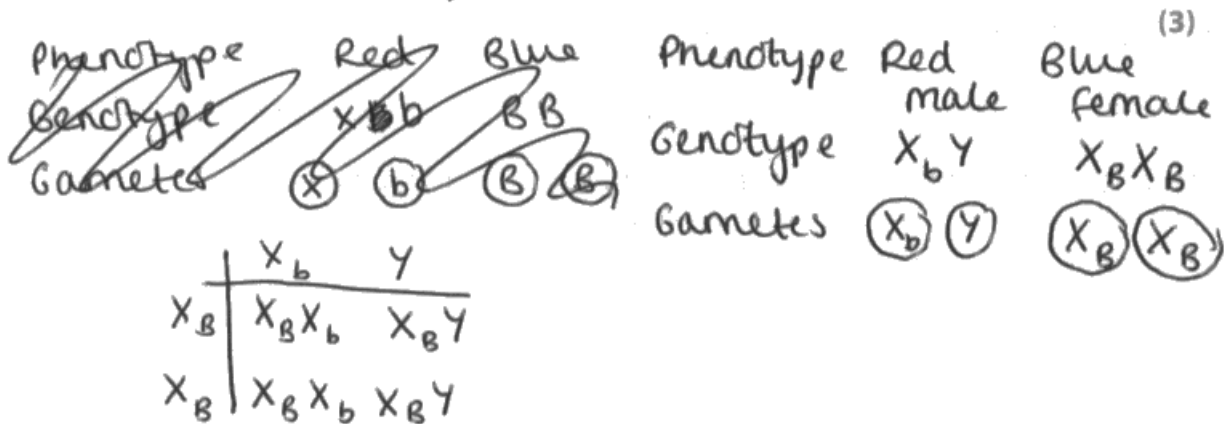 (3)
Phenotype Red Blue
Genotype X b B B
Gametes X b B B
Phenotype Red male Blue female
Genotype X_b Y X_B X_B
Gametes X_b Y X_B X_B
X_b Y
X_B X_B X_b X_B Y
X_B X_B X_b X_B Y